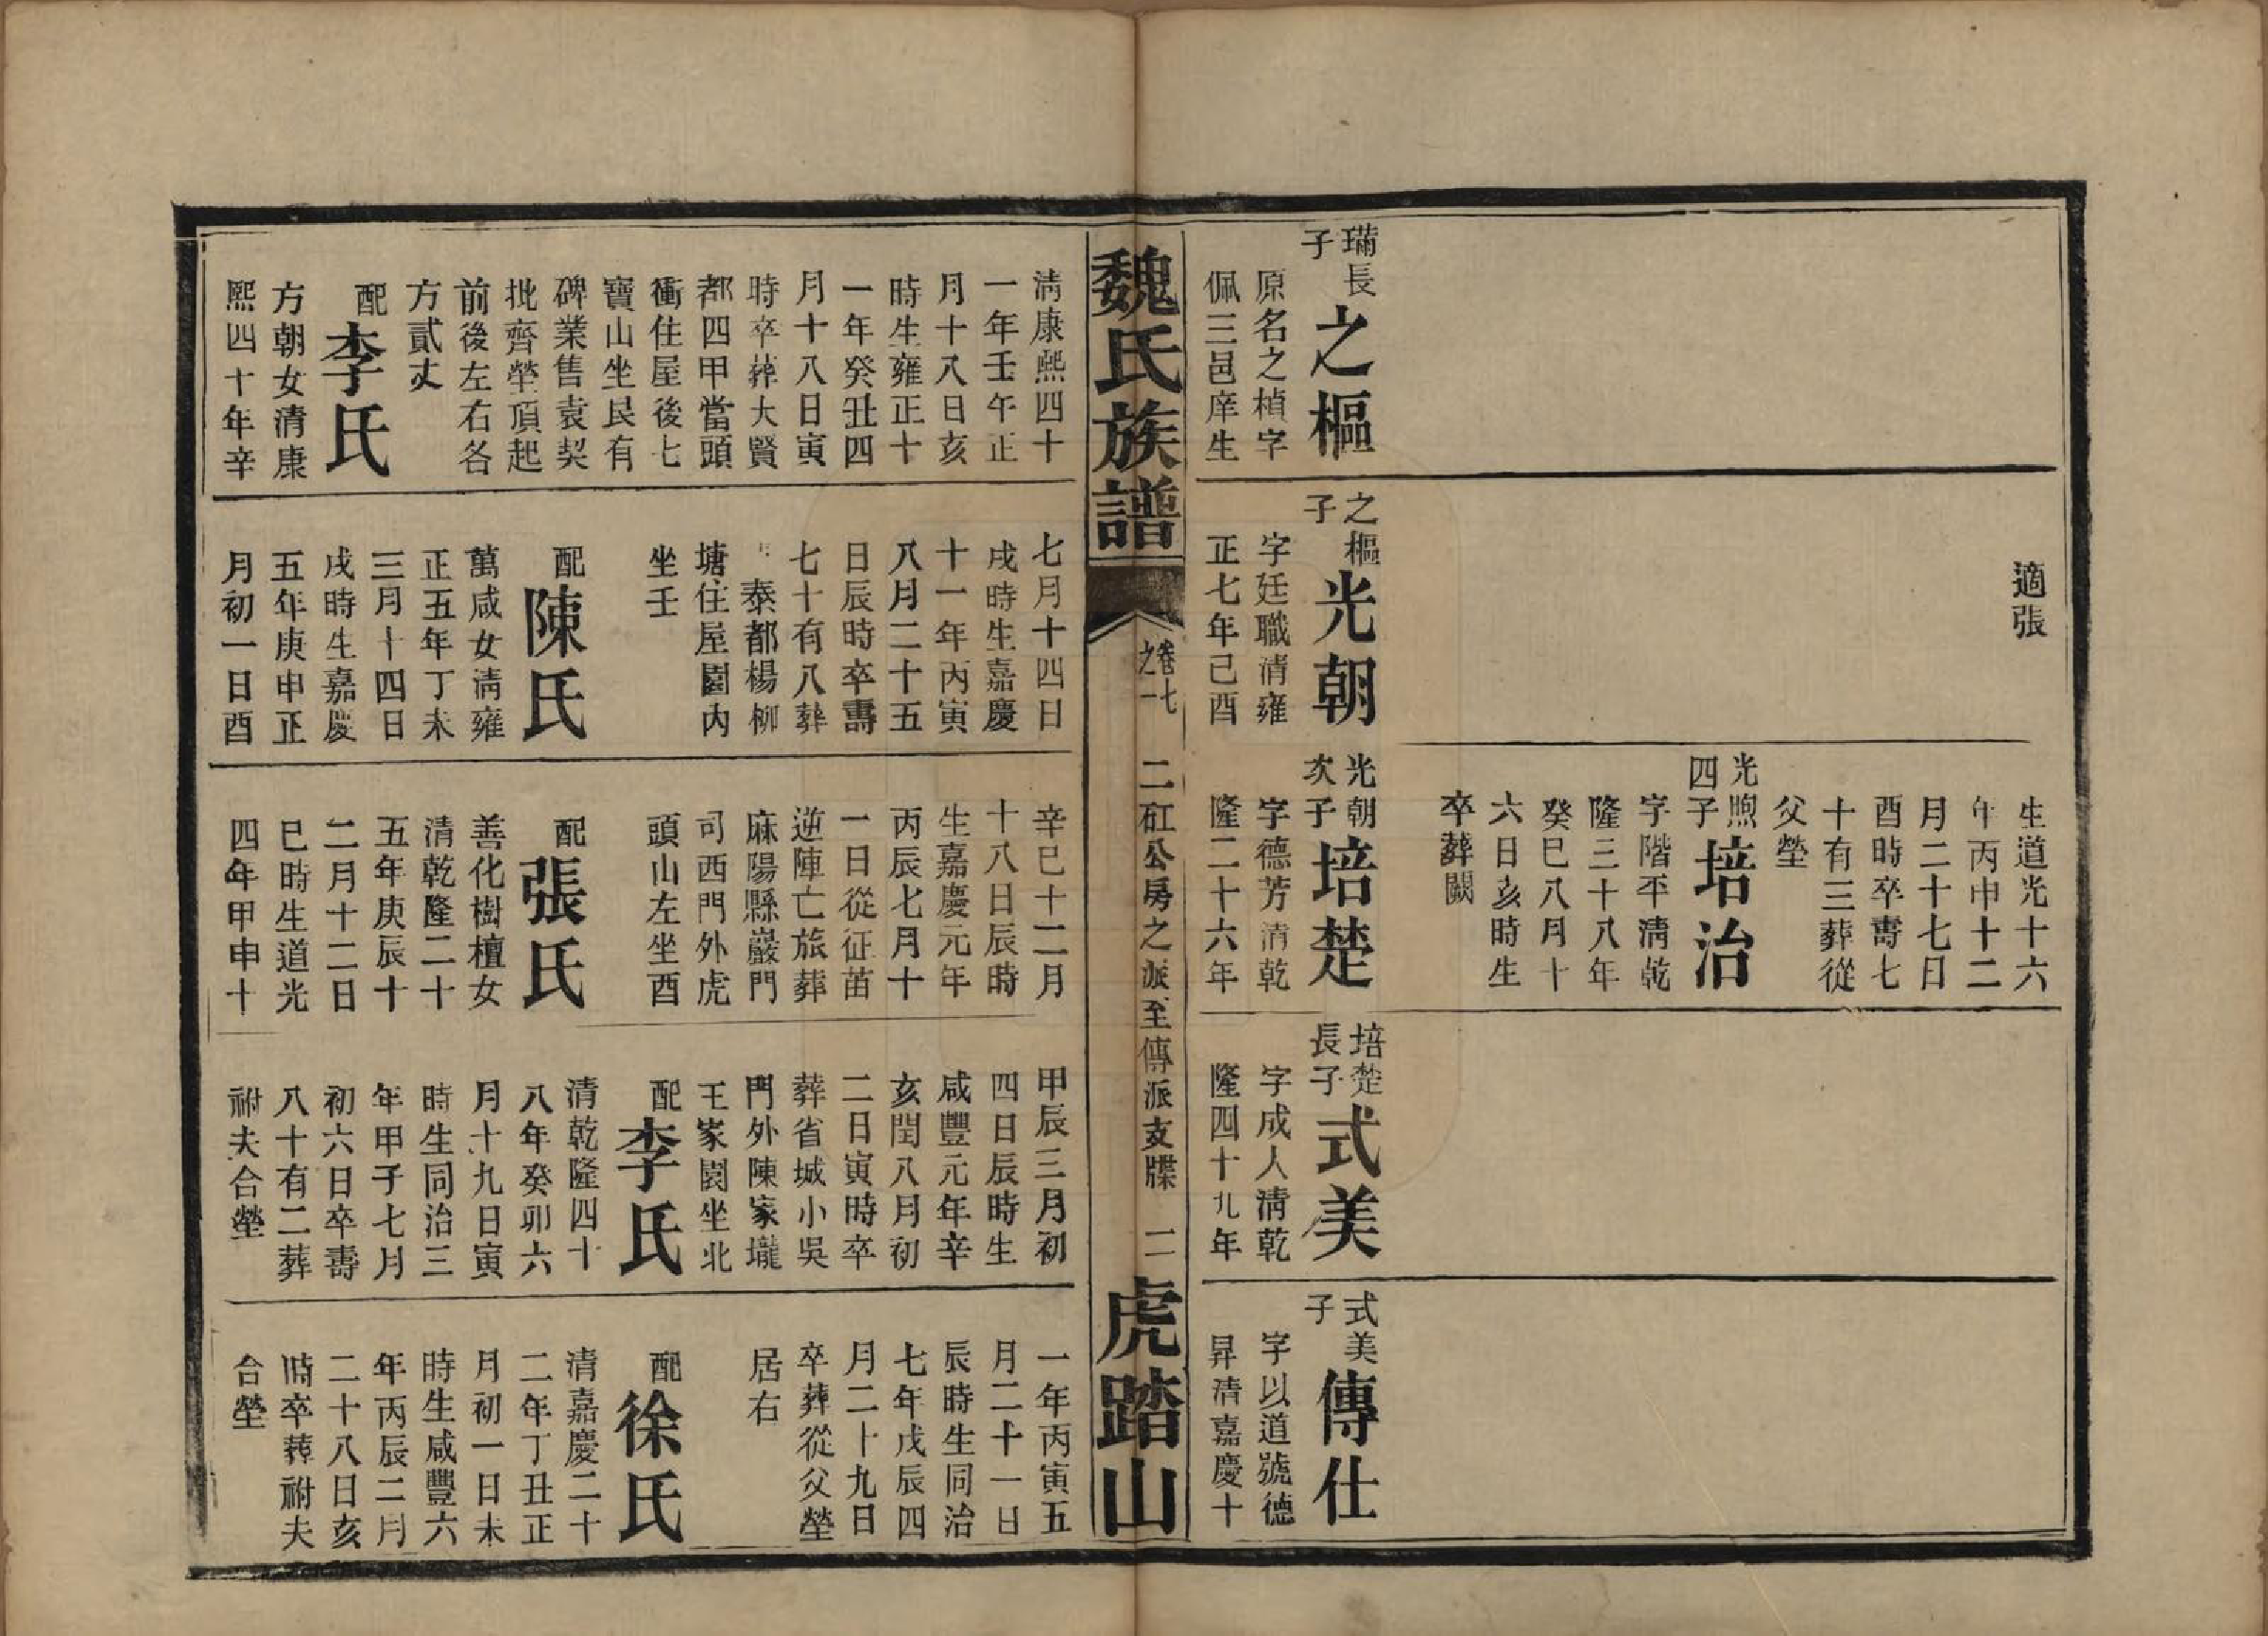 瑞長
子
之樞
原名之楨字
佩三邑庠生
適張
之樞
子
光朝
字廷職清雍
正七年己酉
生道光十六
年丙申十二
月二十七日
酉時卒壽七
十有三葬從
父塋
光煦
四子
培治
字階平淸乾
隆三十八年
癸巳八月十
六日亥時生
卒葬闕
光朝
次子
培楚
字德芳清乾
隆二十六年
培楚
長子
式美
字成人淸乾
隆四十九年
式美
子
傳仕
字以道號德
昇清嘉慶十
魏氏族譜
卷七
之一
二矼公房之派至傳派支牒
二
虎踏山
淸康熙四十
一年壬午正
月十八日亥
時生雍正十
一年癸丑四
月十八日寅
時卒葬大賢
都四甲當頭
衝住屋後七
寶山坐艮有
碑業售袁契
批齊塋頂起
前後左右各
方貳丈
配
李氏
方朝女清康
熙四十年辛
七月十四日
戌時生嘉慶
十一年丙寅
八月二十五
日辰時卒壽
七十有八葬
泰都楊柳
塘住屋園內
坐壬
配
陳氏
萬咸女淸雍
正五年丁未
三月十四日
戌時生嘉慶
五年庚申正
月初一日酉
辛巳十二月
十八日辰時
生嘉慶元年
丙辰七月十
一日從征苗
逆陣亡旅葬
麻陽縣巖門
司西門外虎
頭山左坐酉
配
張氏
善化樹檀女
清乾隆二十
五年庚辰十
二月十二日
巳時生道光
四年甲申十
甲辰三月初
四日辰時生
咸豐元年辛
亥閏八月初
二日寅時卒
葬省城小吳
門外陳家壠
王家園坐北
配
李氏
清乾隆四十
八年癸卯六
月十九日寅
時生同治三
年甲子七月
初六日卒壽
八十有二葬
祔夫合塋
一年丙寅五
月二十一日
辰時生同治
七年戊辰四
月二十九日
卒葬從父塋
居右
配
徐氏
清嘉慶二十
二年丁丑正
月初一日未
時生咸豐六
年丙辰二月
二十八日亥
時卒葬祔夫
合塋